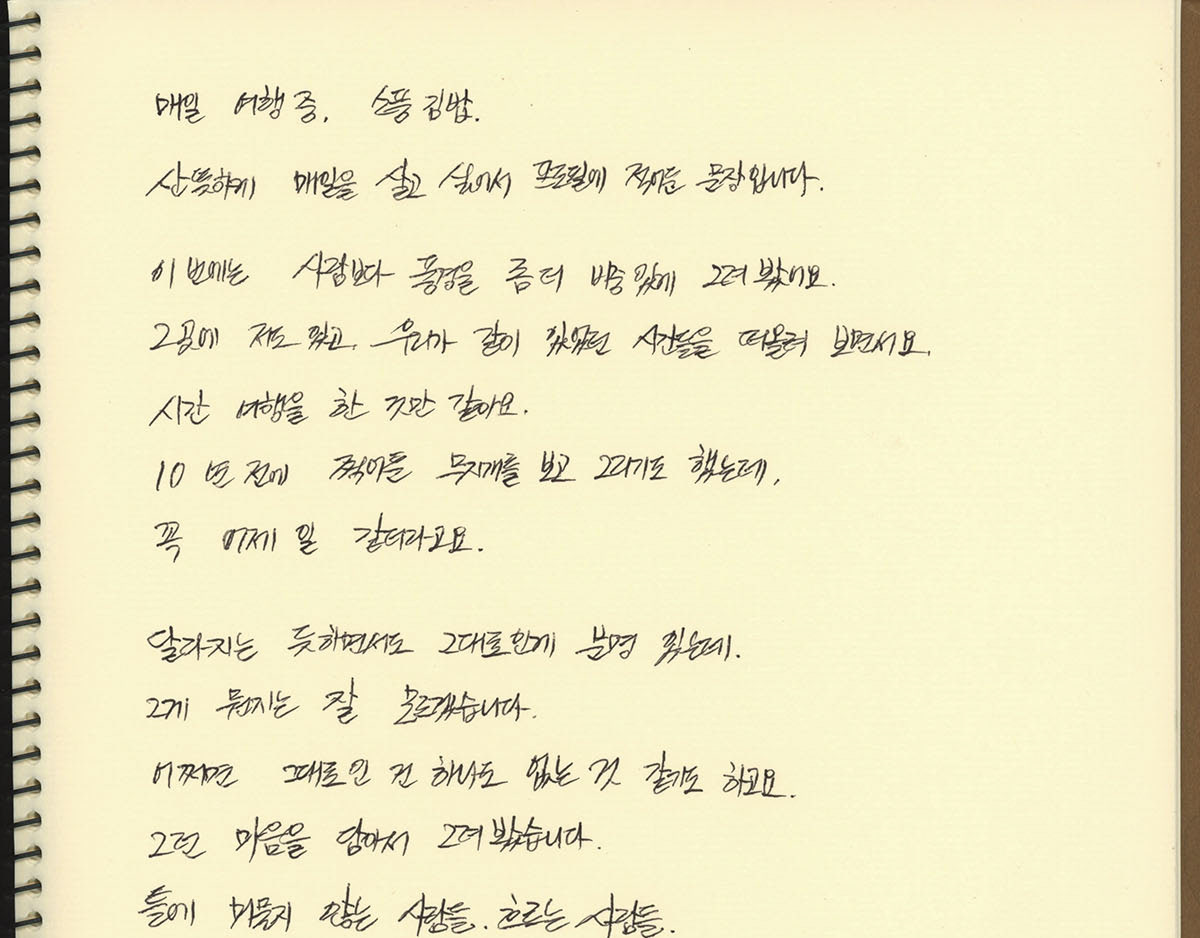 매일 여행 중, 소풍 김밥.
산뜻하게 매일을 살고 싶어서 프로필에 적어둔 문장입니다.
이 번에는 사람보다 풍경을 좀 더 비중 있게 그려 봤어요.
그곳에 저도 있고, 우리가 같이 있었던 시간들을 떠올려 보면서요.
시간 여행을 한 것만 같아요.
10 년 전에 찍어둔 무지개를 보고 그리기도 했는데,
꼭 어제 일 같더라고요.
달라지는 듯하면서도 그대로인게 분명 있는데.
그게 뭔지는 잘 모르겠습니다.
어쩌면 그대로인 건 하나도 없는 것 같기도 하고요.
그런 마음을 담아서 그려 봤습니다.
틀에 머물지 않는 사람들. 흐르는 사람들.